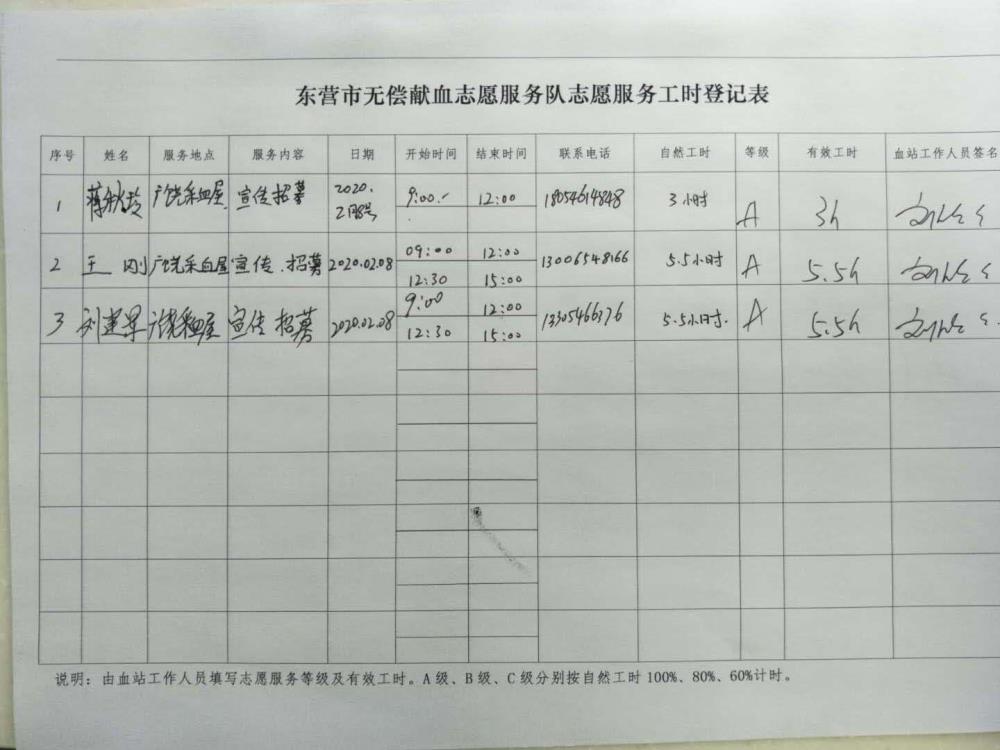 东营市无偿献血志愿服务队志愿服务工时登记表
序号 姓名 服务地点 服务内容 日期 开始时间 结束时间 联系电话 自然工时 等级 有效工时 血站工作人员签名
1 蒋秋玲 广饶采血屋 宣传招募 2020.2月8号 9:00.- 12:00 18054614848 3小时 A 3h
2 王刚 广饶采血屋 宣传.招募 2020.02.08 09:00 12:00 13006548166 5.5小时 A 5.5h
12:30 15:00
3 刘建军 广饶采血屋 宣传招募 2020.02.08 9:00 12:00 13305466376 5.5小时. A 5.5h
12:30 15:00
说明：由血站工作人员填写志愿服务等级及有效工时。A级、B级、C级分别按自然工时100%、80%、60%计时。